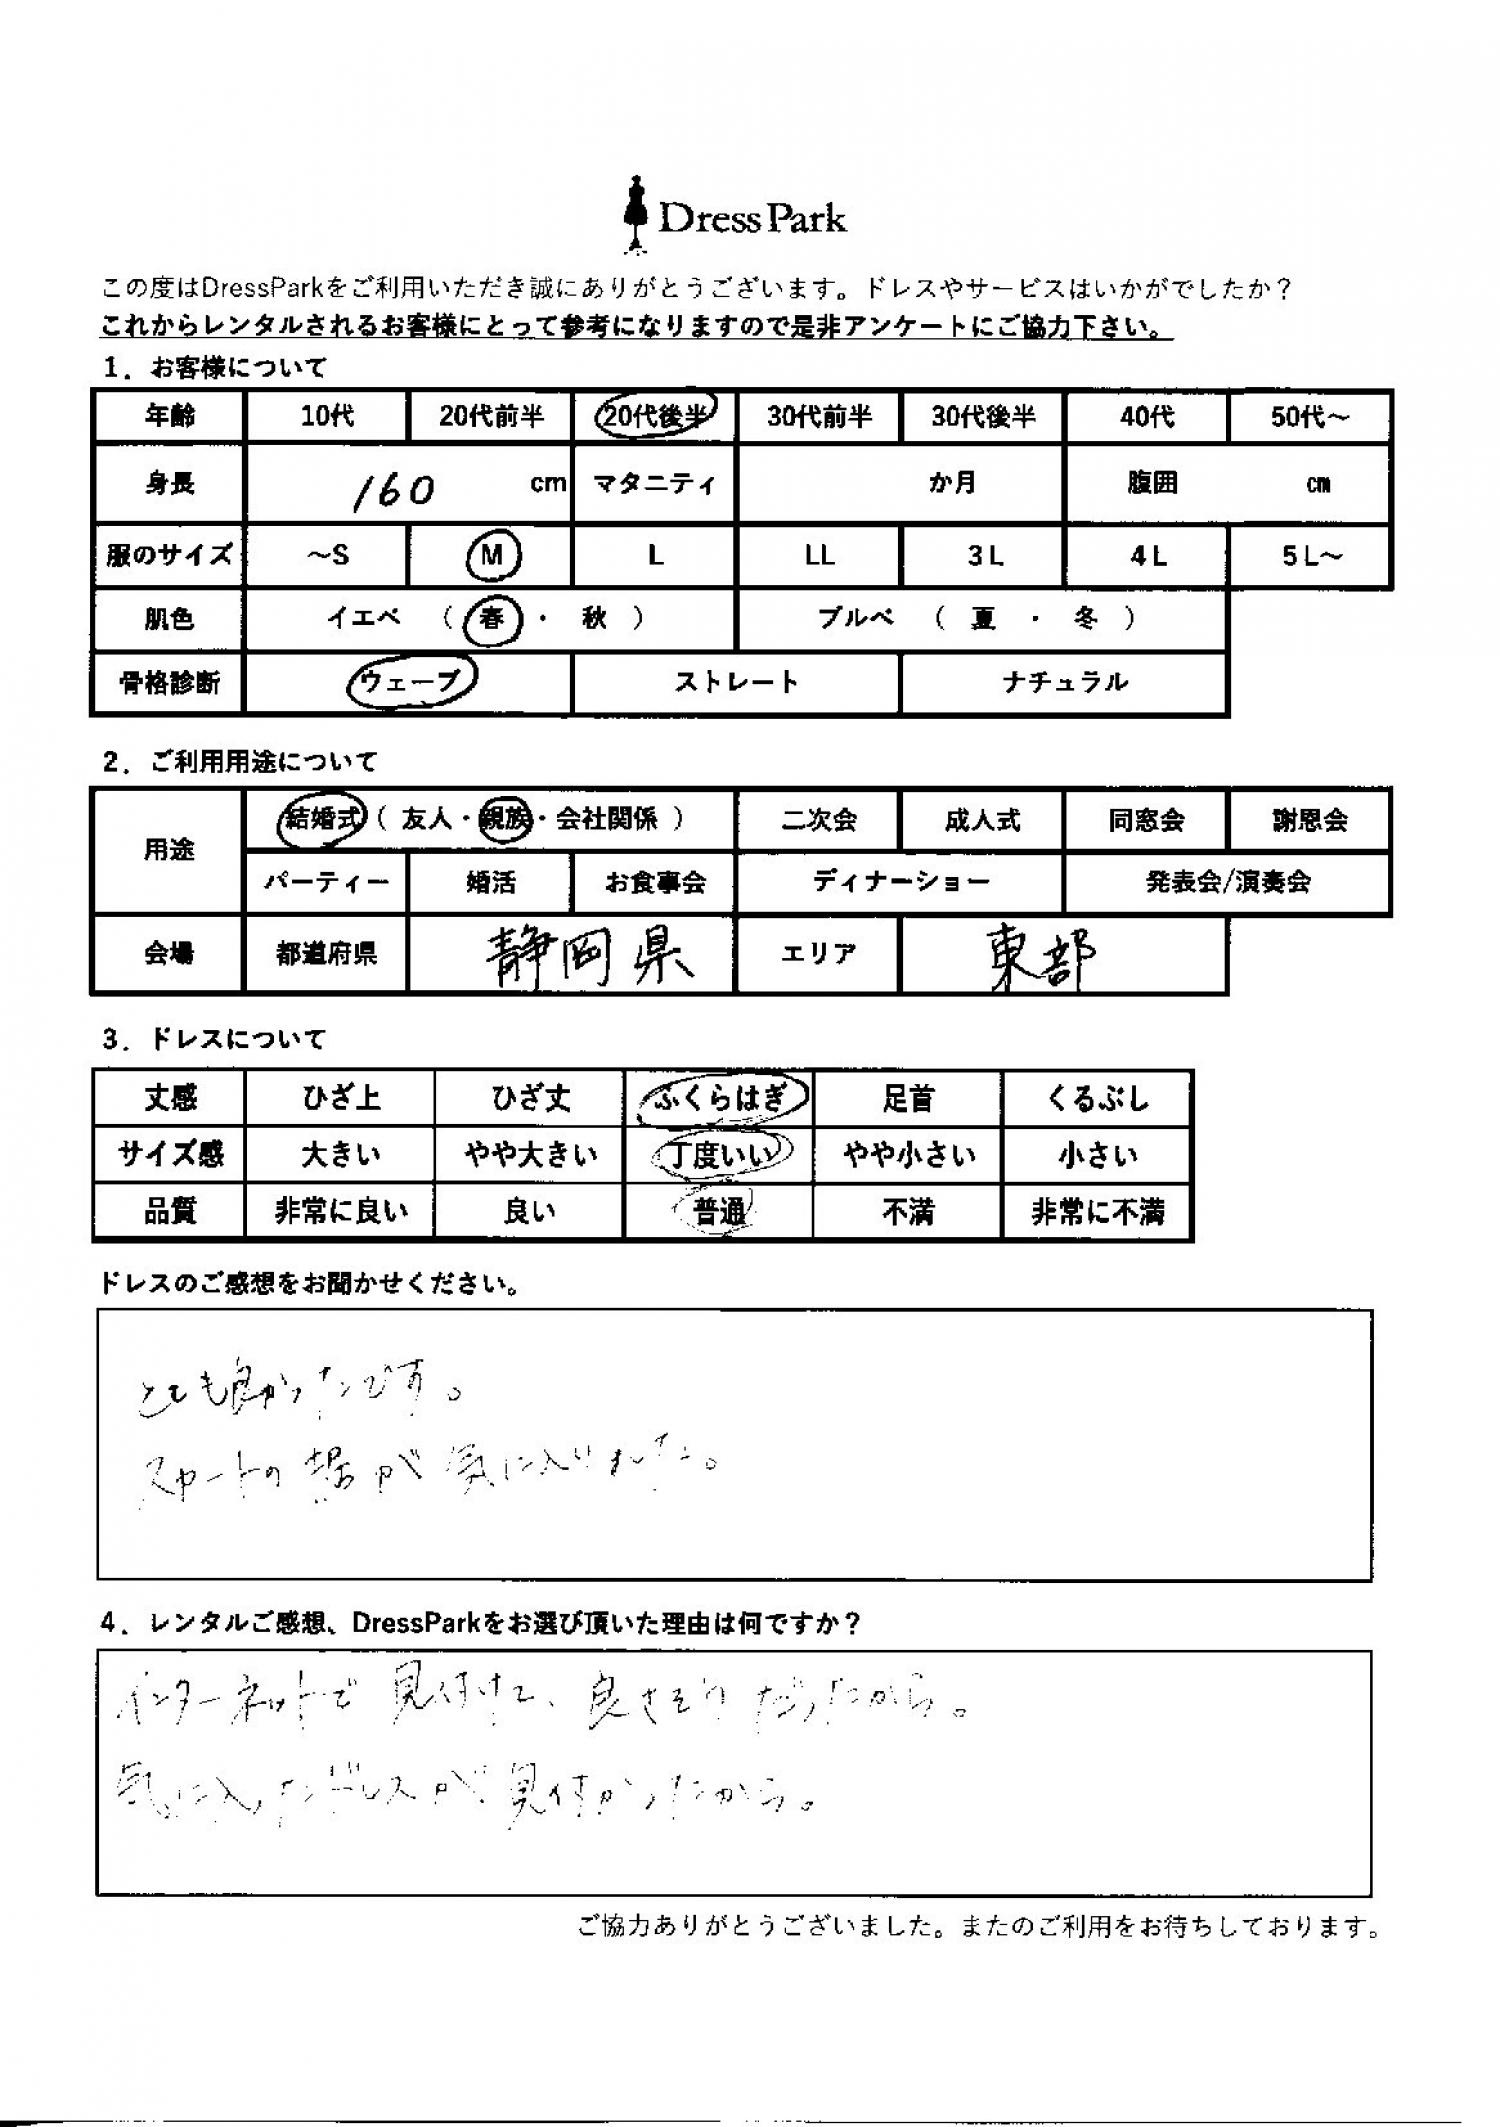 Dress Park
この度はDressParkをご利用いただき誠にありがとうございます。ドレスやサービスはいかがでしたか？
これからレンタルされるお客様にとって参考になりますので是非アンケートにご協力下さい。
1．お客様について
年齢 10代 20代前半 20代後半 30代前半 30代後半 40代 50代～
身長 160 cm マタニティ か月 腹囲 ㎝
服のサイズ ～S M L LL 3L 4L 5L～
肌色 イエベ （ 春 ・ 秋 ） ブルベ （ 夏 ・ 冬 ）
骨格診断 ウェーブ ストレート ナチュラル
2．ご利用用途について
用途 結婚式（ 友人・親族・会社関係 ） 二次会 成人式 同窓会 謝恩会
パーティー 婚活 お食事会 ディナーショー 発表会/演奏会
会場 都道府県 静岡県 エリア 東部
3．ドレスについて
丈感 ひざ上 ひざ丈 ふくらはぎ 足首 くるぶし
サイズ感 大きい やや大きい 丁度いい やや小さい 小さい
品質 非常に良い 良い 普通 不満 非常に不満
ドレスのご感想をお聞かせください。
とても良かったです。
スカートの裾が気に入りました。
4．レンタルご感想、DressParkをお選び頂いた理由は何ですか？
インターネットで見付けて、良さそうだったから。
気に入ったドレスが見付かったから。
ご協力ありがとうございました。またのご利用をお待ちしております。